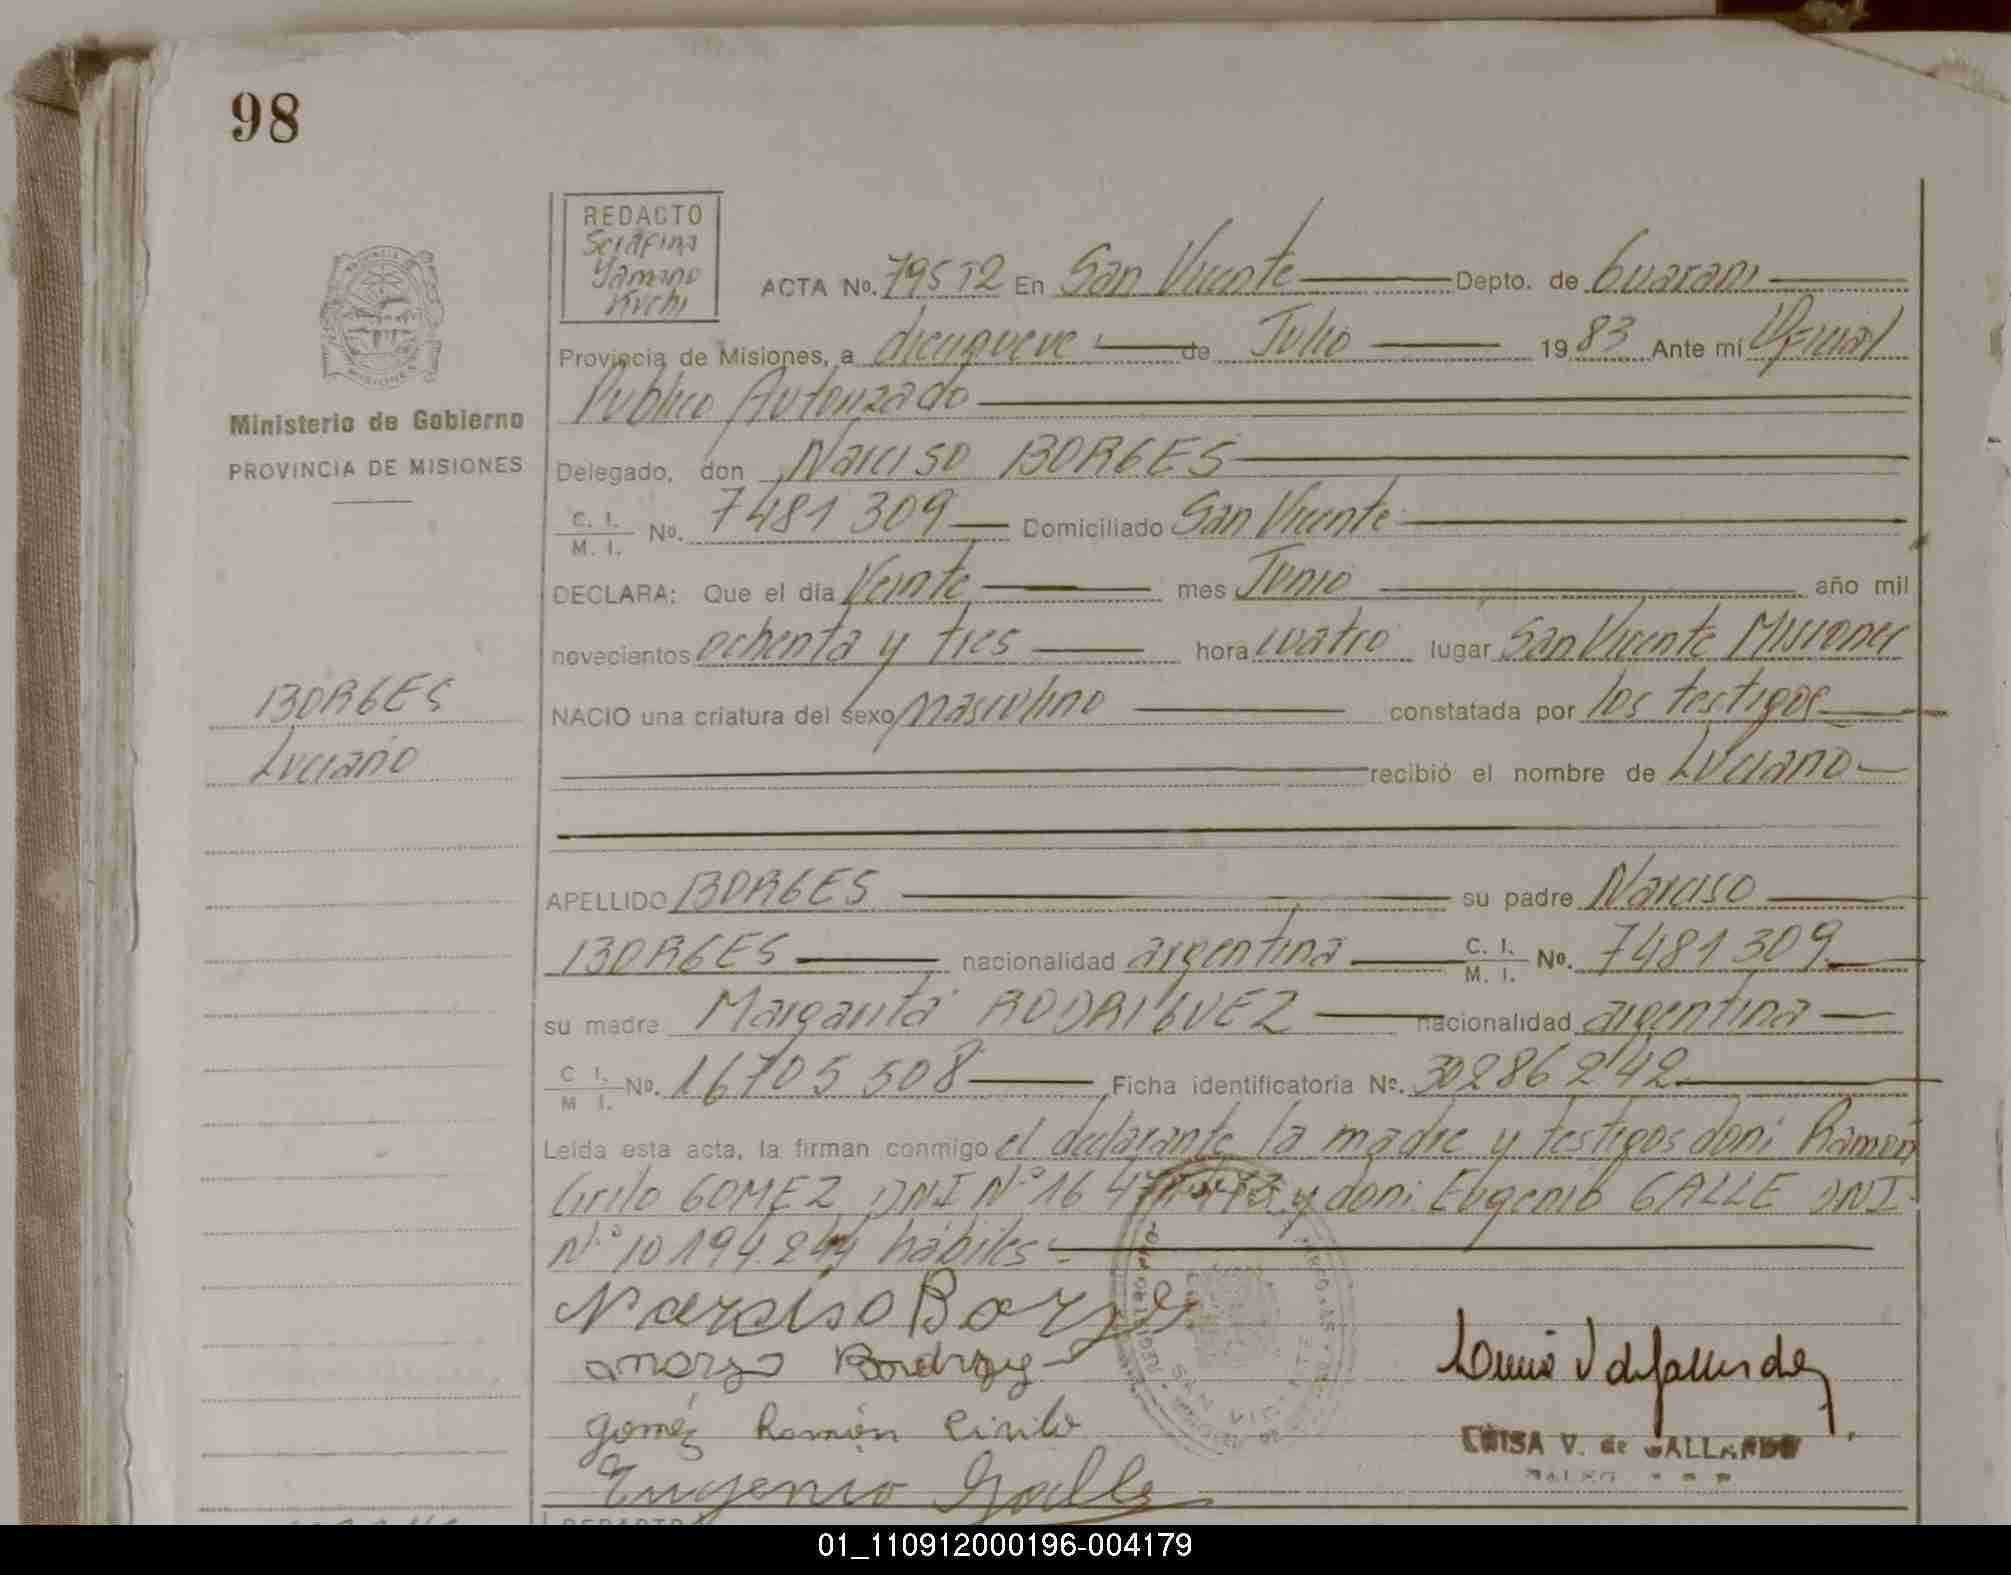 98
REDACTO
Serafina
Yamano
Kuchi
ACTA No. 795 T2 En San Vicente Depto. de Guarani
Provincia de Misiones, a diecinueve de Julio 19 83 Ante mí Oficial
Publico Autorizado
Ministerio de Gobierno
PROVINCIA DE MISIONES
Delegado, don Narciso BORGES
C. I.
M. I. No. 7481309 Domiciliado San Vicente
DECLARA: Que el día Veinte mes Junio año mil
novecientos ochenta y tres hora cuatro lugar San Vicente Misiones
BORGES
NACIO una criatura del sexo masculino constatada por los testigos
Luciano
recibió el nombre de Luciano
APELLIDO BORGES su padre Narciso
BORGES nacionalidad argentina C. I. M. I. No. 7481309
su madre Margarita RODRIGUEZ nacionalidad argentina
C I. M I. No. 16705508 Ficha identificatoria Nº. 30286242
Leída esta acta, la firman conmigo el declarante, la madre y testigos don: Ramón
Cirilo GOMEZ, DNI Nº 16 y don: Eugenio GALLE DNI
Nº 10194.244 hábiles:
Narciso Borge
Gómez Ramón Cirilo
Eugenio Galle
LUISA V. de GALLARDO
SAN VICENTE
REDACTO
01_110912000196-004179